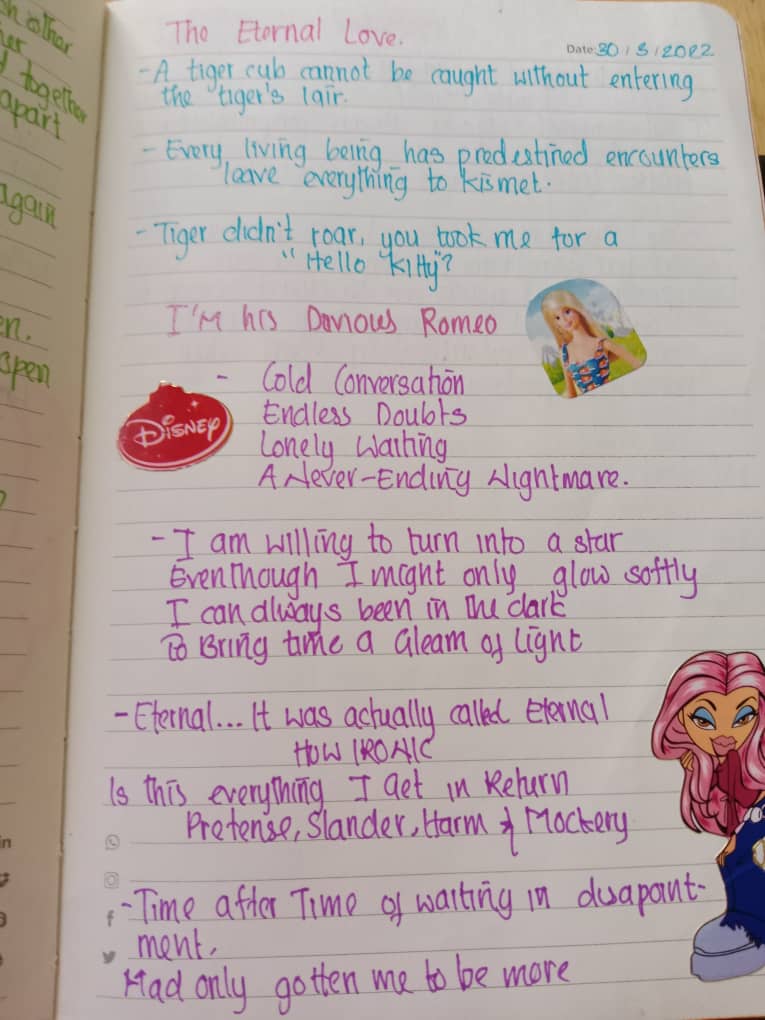 sh other
her
y together
apart
again
en.
open
in
The Eternal Love.
Date: 30 / 5 / 2022
- A tiger cub cannot be caught without entering
the tiger's lair.
- Every living being has predestined encounters
leave everything to kismet.
- Tiger didn't roar, you took me for a
"Hello Kitty"?
I'M his Devious Romeo
- Cold Conversation
Disney
Endless Doubts
Lonely Waiting
A Never-Ending Nightmare.
- I am willing to turn into a star
Eventhough I might only glow softly
I can always been in the dark
To Bring time a Gleam of Light
- Eternal... It was actually called Eternal
HOW IRONIC
Is this everything I Get in Return
Pretense, Slander, Harm & Mockery
- Time after Time of waiting in disapoint-
ment,
Had only gotten me to be more